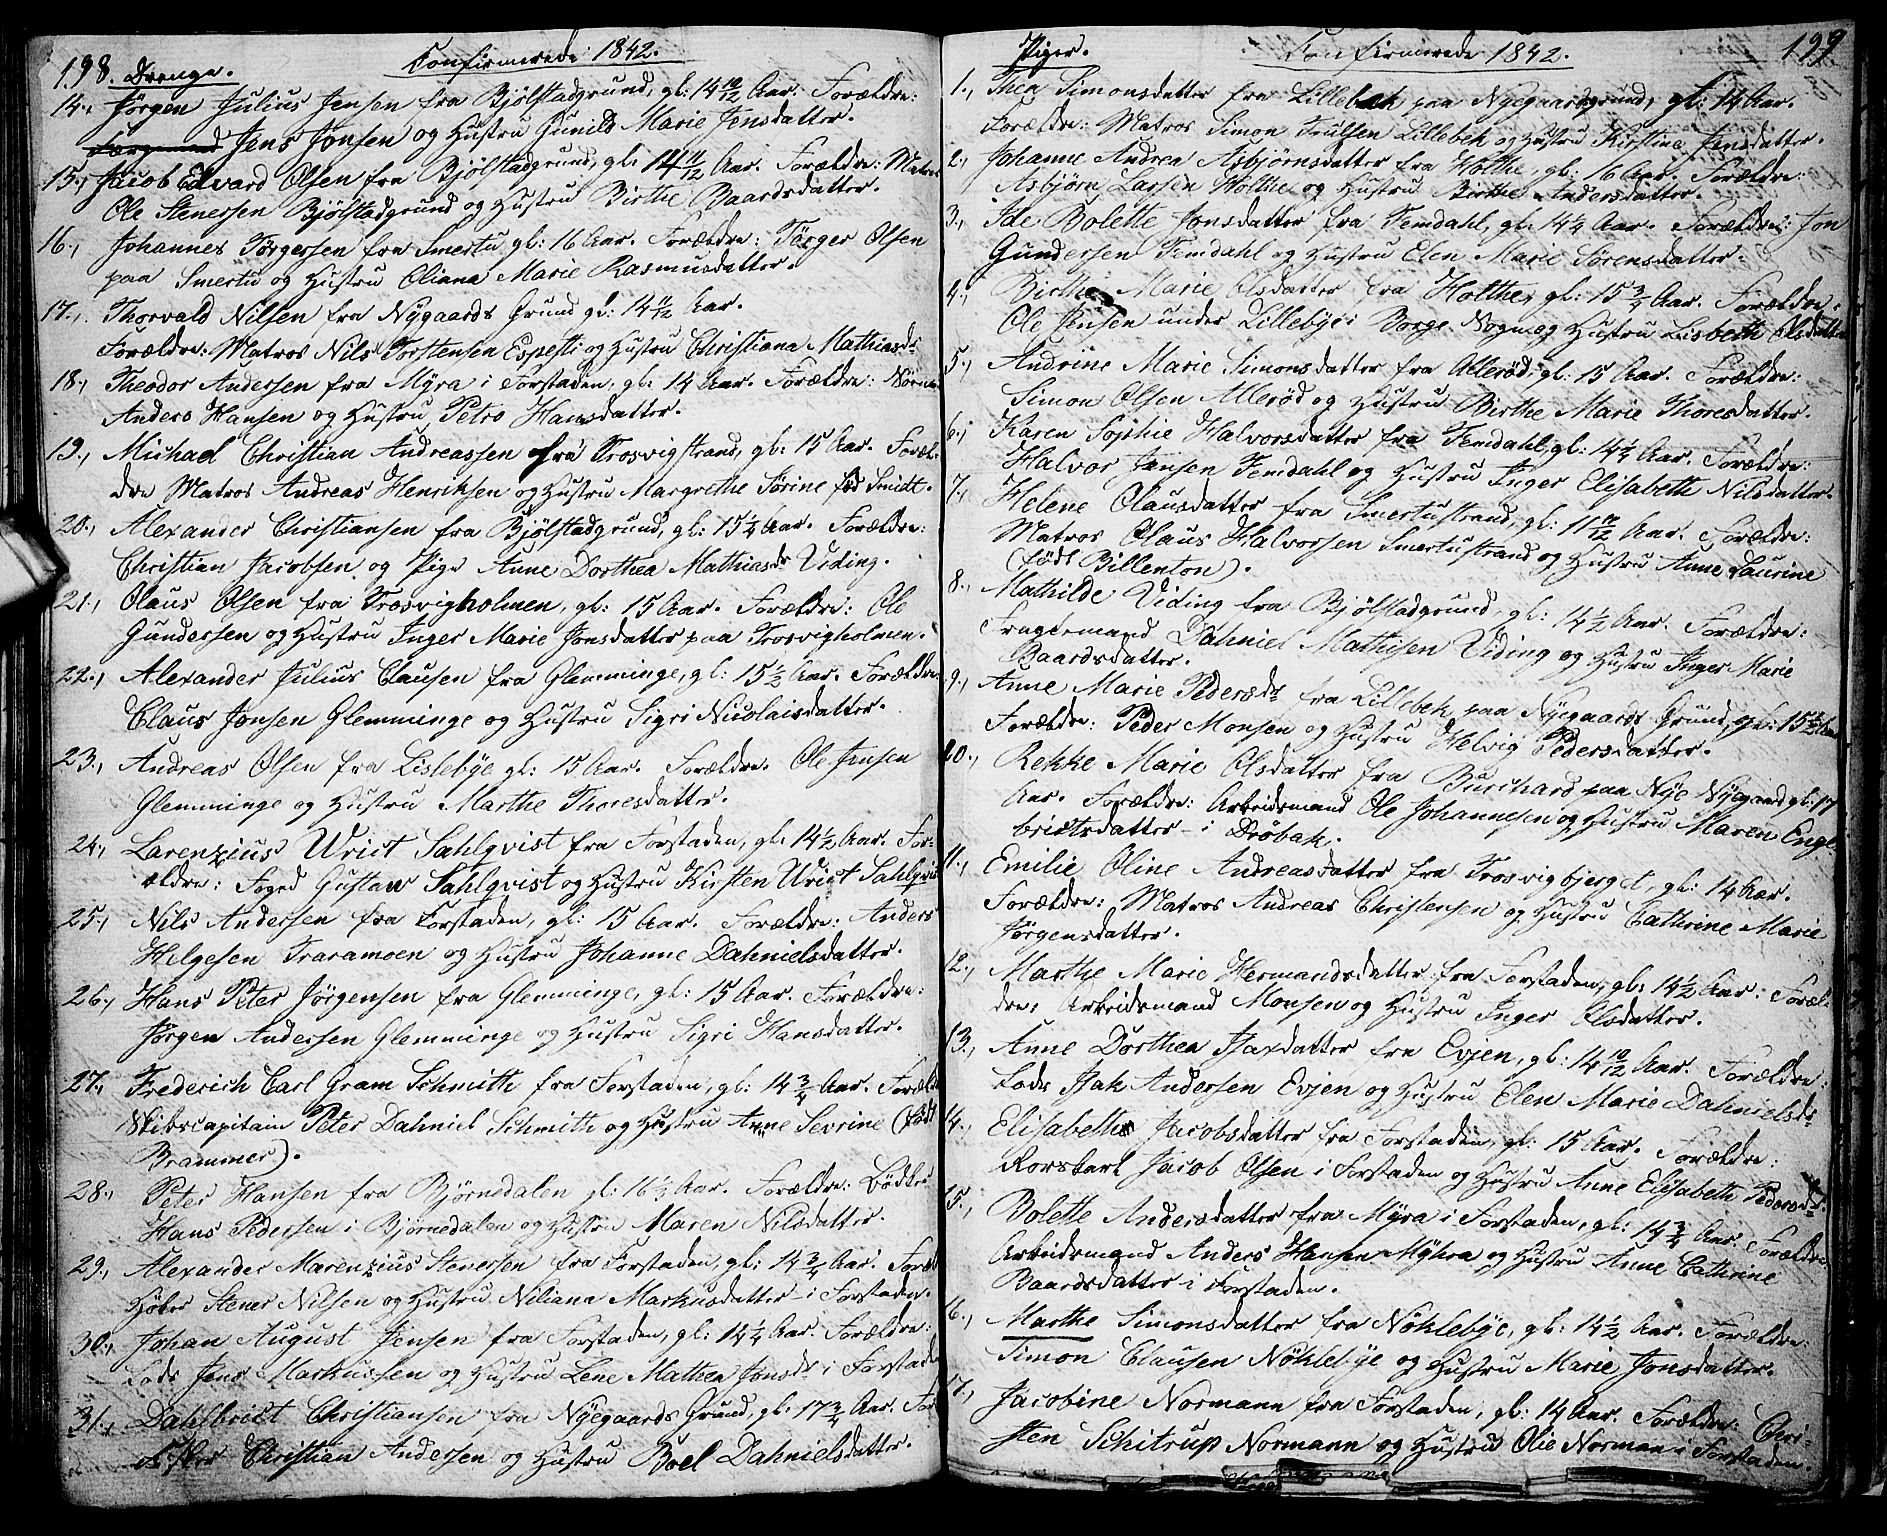 198. Drenge.
Confirmerede 1842.
14., Jørgen Julius Jensen fra Bjølstadgrund, gl: 14 10/12 Aar. Forældre:
Jens Jonsen og Hustru Gunild Marie Jensdatter.
15., Jacob Edvard Olsen fra Bjølstadgrund, gl: 14 11/12 Aar. Forældre: Matros
Ole Stenersen Bjølstadgrund og Hustru Birthe Baardsdatter.
16., Johannes Torgersen fra Smertu gl: 16 Aar. Forældre: Torger Olsen
paa Smertu og Hustru Oliana Marie Rasmusdatter.
17., Thorvald Nilsen fra Nygaards Grund gl: 14 11/12 Aar.
Forældre: Matros Nils Torstensen Espesti og Hustru Christiana Mathiasdr
18., Theodor Andersen fra Myra i Forstaden, gl: 14 Aar. Forældre:
Anders Hansen og Hustru Petro Hansdatter.
19., Michael Christian Andreassen fra Trosvigstrand, gl: 15 Aar. Foræl-
dre Matros Andreas Henriksen og Hustru Margrethe Sørine fød Smidt.
20., Alexander Christiansen fra Bjølstadgrund, gl: 15 1/4 Aar. Forældre:
Christian Jacobsen og Pige Anne Dorthea Mathiasdr Viding.
21., Olaus Olsen fra Trosvigholmen, gl: 15 Aar. Forældre: Ole
Gundersen og Hustru Inger Marie Jonsdatter paa Trosvigholmen.
22., Alexander Julius Clausen fra Glemminge, gl: 15 1/2 Aar. Forældre
Claus Jonsen Glemminge og Hustru Sigri Nicolaisdatter.
23., Andreas Olsen fra Lislebye gl: 15 Aar. Forældre. Ole Jensen
Glemminge og Hustru Marthe Thoresdatter.
24., Larenzius Wrict Sahlqvist fra Forstaden, gl: 14 1/2 Aar. For-
ældre: Foged Gustaw Sahlqvist og Hustru Kirsten Wrict Sahlqvist
25., Nils Andersen fra Forstaden, gl: 15 Aar. Forældre: Anders
Helgesen Traramoen og Hustru Johanne Dahnielsdatter.
26., Hans Peter Jørgensen fra Glemminge, gl: 15 Aar. Forældre:
Jørgen Andersen Glemminge og Hustru Sigri Hansdatter.
27., Frederich Carl Gram Schmith fra Forstaden, gl: 14 3/4 Aar. Forældr
Skibscapitain Peter Dahniel Schmith og Hustru Anne Sevrine (født
Brammer).
28., Peter Hansen fra Bjørnedalen gl: 16 1/2 Aar. Forældre: Bødker
Hans Pedersen i Bjørnedalen og Hustru Maren Nilsdatter.
29., Alexander Marenzius Stenersen fra Forstaden, gl: 14 3/4 Aar. Foræl
Høker Stener Nilsen og Hustru Niliana Markusdatter i Forstaden.
30., Johan August Jensen fra Forstaden, gl: 14 1/4 Aar. Forældre:
Lods Jens Markussen og Hustru Lene Mathea Jonsdr i Forstaden
31., Dahlbrict Christiansen fra Nyegaards Grund, gl: 17 3/4 Aar. For
Christian Andersen og Hustru Boel Dahnielsdatter.
Piger. Confirmerede 1842. 199
1., Thea Simonsdatter fra Lillebek paa Nyegaardsgrund, gl: 14 Aar.
Forældre: Matros Simon Trulsen Lillebek og Hustru Kirstine Jensdatter.
2., Johanne Andrea Asbjørnsdatter fra Holthe, gl: 16 Aar. Forældre:
Asbjørn Larsen Holthe og Hustru Birthe Andersdatter.
3., Ide Bolette Jonsdatter fra Femdahl, gl: 14 1/4 Aar. Forældre: Jon
Gundersen Femdahl og Hustru Elen Marie Sørensdatter.
4., Birthe Marie Olsdatter fra Holthe, gl: 15 3/4 Aar. Forældre:
Ole Jensen under Lillebye i Borge Sogn og Hustru Lisbeth Olsdatter
5., Andrine Marie Simonsdatter fra Allerød gl: 15 Aar. Forældre:
Simon Olsen Allerød og Hustru Birthe Marie Thoresdatter.
6., Karen Sophie Halvorsdatter fra Femdahl, gl: 14 1/2 Aar. Forældre:
Halvor Jensen Femdahl og Hustru Inger Elisabeth Nilsdatter.
7., Helene Olausdatter fra Smertustrand, gl: Aar. Forældre:
Matros Olaus Halvorsen Smertustrand og Hustru Anne Laurine
(født Billenton).
8., Mathilde Viding fra Bjølstadgrund, gl: 14 1/2 Aar. Forældre:
Fragtemand Dahniel Mathisen Viding og Hustru Inger Marie
Baardsdatter.
9., Anne Marie Pedersdr fra Lillebek paa Nyegaards Grund, gl: 15
Forældre: Peder Monsen og Hustru Helvig Pedersdatter.
10., Rekke Marie Olsdatter fra Burchard paa Nye Nyegaard gl: 17
Aar. Forældre: Arbeidsmand Ole Johannesen og Hustru Maren Engel-
brictsdatter i Drøbak.
11., Emilie Oline Andreasdatter fra Trosvigbjerget, gl: 14 Aar.
Forældre: Matros Andreas Christensen og Hustru Cathrine Marie
Jørgensdatter.
12., Marthe Marie Hermandsdatter fra Forstaden, gl: 14 1/2 Aar. Foræl-
dre: Arbeidsmand Monsen og Hustru Inger Olsdatter.
13., Anne Dorthea Isaxdatter fra Evjen, gl: 14 10/12 Aar. Forældre:
Lods Isak Andersen Evjen og Hustru Elen Marie Dahnielsdr
14., Elisabeth Jacobsdatter fra Forstaden, gl: 15 Aar. Forældre:
Rorskarl Jacob Olsen i Forstaden og Hustru Anne Elisabeth Pedersdr.
15., Bolette Andersdatter fra Myra i Forstaden, gl: 14 3/4 Aar. Forældre
Arbeidsmand Anders Hansen Myhra og Hustru Anne Cathrine
Baardsdatter i Forstaden.
16., Marthe Simonsdatter fra Nøklebye, gl: 14 1/2 Aar. Forældre:
Simon Clausen Nøklebye og Hustru Marie Jonsdatter.
17., Jacobine Normann fra Forstaden, gl: 14 Aar. Forældre: Chri-
sten Schitrup Normann og Hustru Olie Norman i Forstaden.